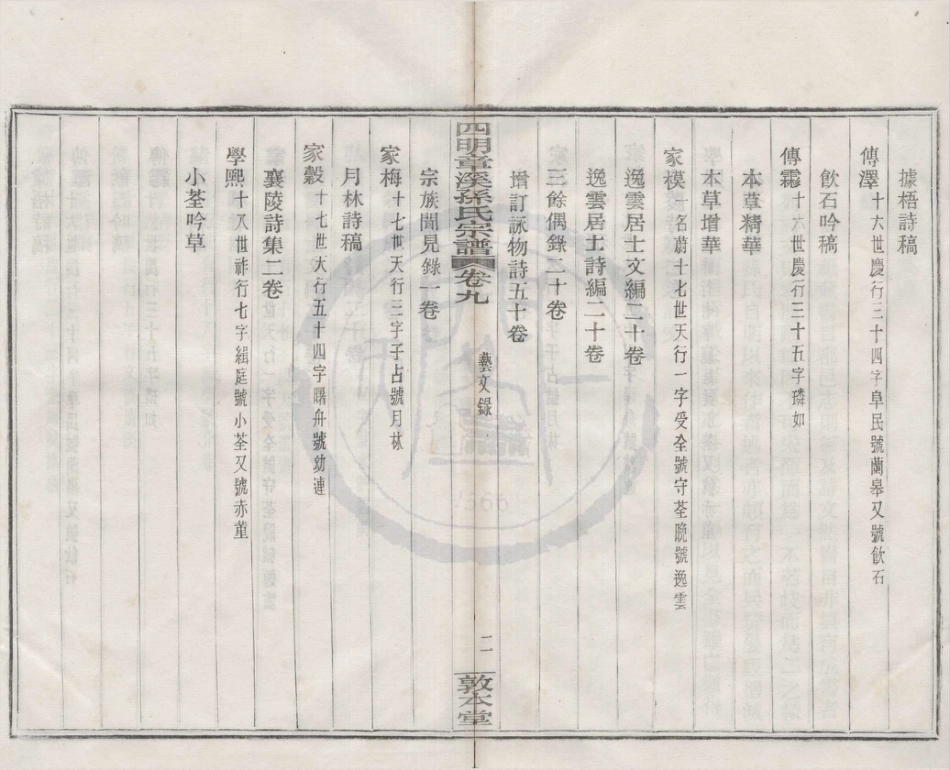 據梧詩稿
傳澤 十六世慶行三十四字阜民號蘭皋又號飲石
飲石吟稿
傳霦 十六世慶行三十五字璘如
本草精華
本草增華
家模 一名蔚十七世天行一字受全號守荃晚號逸雲
逸雲居士文編二十卷
逸雲居士詩編二十卷
三餘偶錄二十卷
增訂詠物詩五十卷
四明章溪孫氏宗譜 卷九 藝文錄 二 敦本堂
宗族聞見錄一卷
家梅 十七世天行三字子占號月林
月林詩稿
家穀 十七世天行五十四字曙舟號幼漣
襄陵詩集二卷
學熙 十八世祚行七字緝庭號小荃又號赤堇
小荃吟草